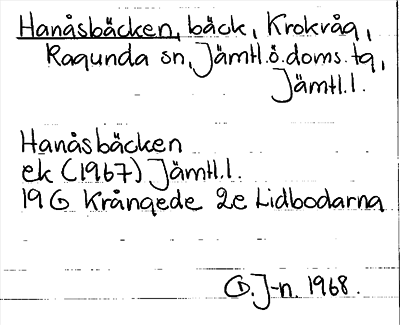 Hanåsbäcken, bäck, Krokvåg,
Ragunda sn, Jämtl.ö.doms.tg,
Jämtl.l.
Hanåsbäcken
ek (1967) Jämtl.l.
19 G Krångede 2e Lidbodarna
J-n. 1968.